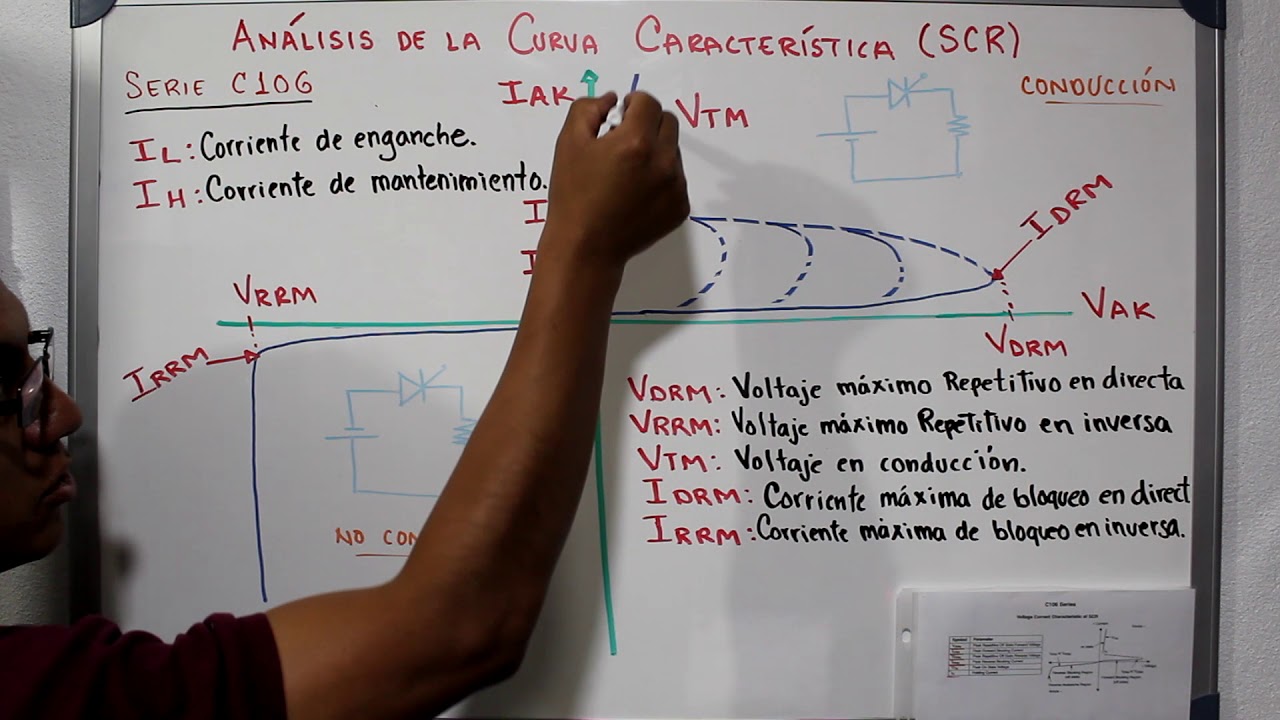 ANÁLISIS DE LA CURVA CARACTERÍSTICA (SCR)
SERIE C106
CONDUCCIÓN
IAK
VTM
IL: Corriente de enganche.
IH: Corriente de mantenimiento.
I
I
IDRM
VRRM
VAK
IRRM
VDRM
VDRM: Voltaje máximo Repetitivo en directa
VRRM: Voltaje máximo Repetitivo en inversa
VTM: Voltaje en conducción.
IDRM: Corriente máxima de bloqueo en direct
IRRM: Corriente máxima de bloqueo en inversa.
NO CON
C106 Series
Voltage Current Characteristic of SCR
Symbol Parameter